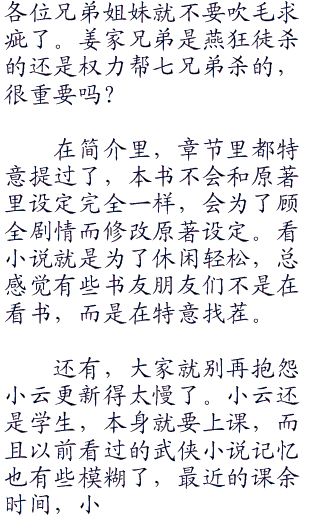 各位兄弟姐妹就不要吹毛求
疵了。姜家兄弟是燕狂徒杀
的还是权力帮七兄弟杀的，
很重要吗？
在简介里，章节里都特
意提过了，本书不会和原著
里设定完全一样，会为了顾
全剧情而修改原著设定。看
小说就是为了休闲轻松，总
感觉有些书友朋友们不是在
看书，而是在特意找茬。
还有，大家就别再抱怨
小云更新得太慢了。小云还
是学生，本身就要上课，而
且以前看过的武侠小说记忆
也有些模糊了，最近的课余
时间，小